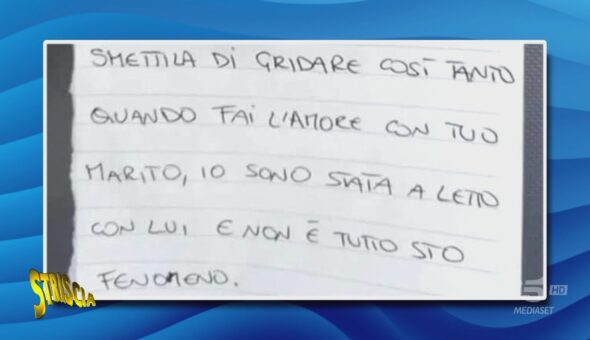 SMETTILA DI GRIDARE COSÌ TANTO
QUANDO FAI L'AMORE CON TUO
MARITO, IO SONO STATA A LETTO
CON LUI E NON È TUTTO STO
FENOMENO.
STRISCIA
5 HD
MEDIASET